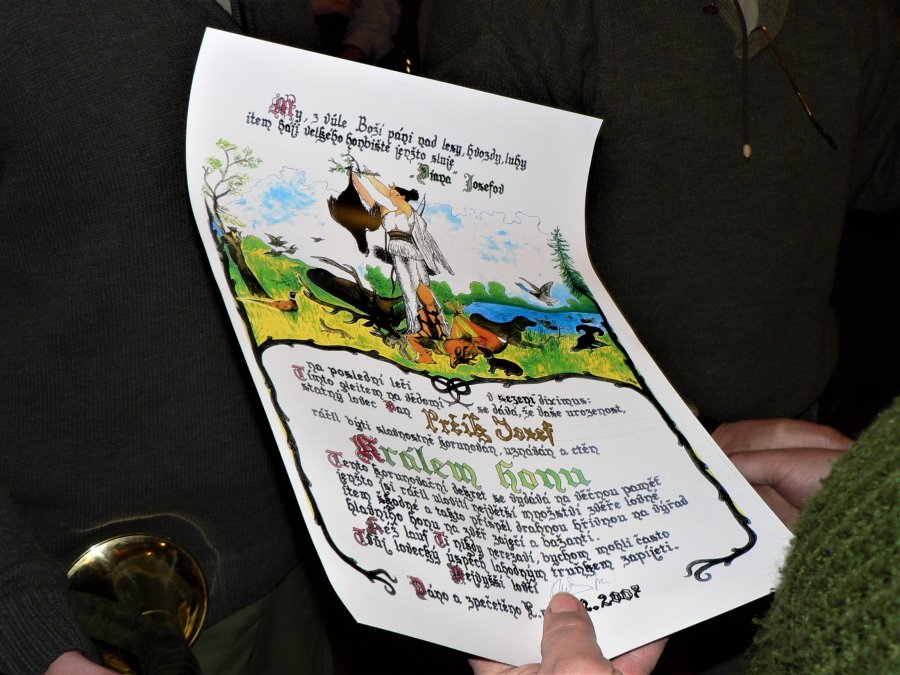 My, z vůle Boží páni nad lesy, hvozdy, luhy
item háji velkého honbiště jenžto sluje
"Diana" Josefov
na poslední leči v sezení diximus:
Tímto glejtem na vědomí se dává, že Vaše urozenost,
statný lovec Pan
Prčík Jozef
ráčil býti slavnostně korunován, uznáván a ctěn
Králem honu
Tento korunovační dekret se vydává na věčnou paměť
jenžto jsi ráčil uloviti největší množství zvěře lovné
item škodné a takto přispěl drahnou hřivnou na výřad
hlavního honu na zvěř zaječí a bažantí.
Kéž lauf Ti nikdy nerezaví, bychom mohli často
Tvůj lovecký úspěch lahodným truňkem zapíjeti.
Nejvyšší lovčí
Dáno a zpečetěno 2007